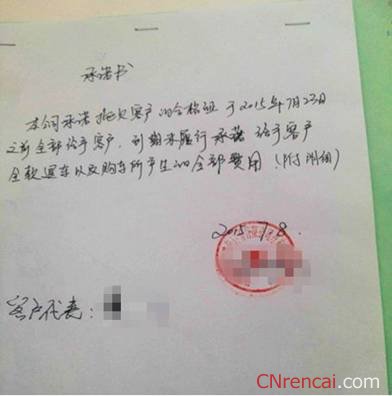 承诺书
本公司承诺 拖欠客户的合格证 于2015年7月23日
之前全部给予客户，到期未履行承诺 给予客户
全款退车以及购车所产生的全部费用（附明细）
2015.7.8.
客户代表：
CNrencai.com